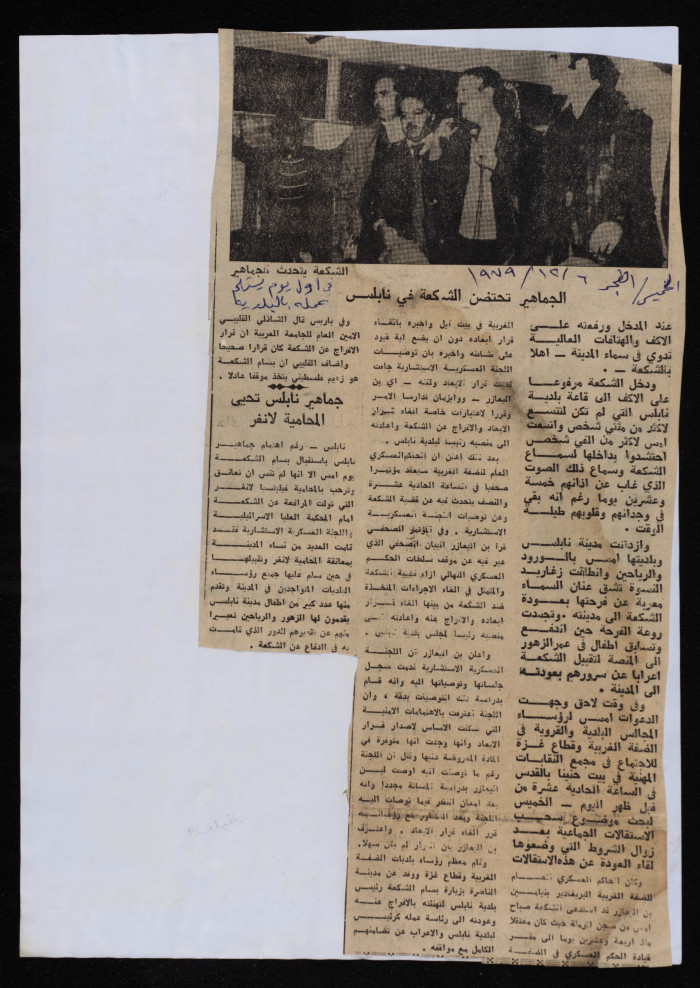 الشكعة يتحدث للجماهير
في اول يوم يستلم
عمله بالبلدية
الخميس / الفجر ٦ / ١٢ / ١٩٧٩
الجماهير تحتضن الشكعة في نابلس
عند المدخل ورفعته على
الاكف والهتافات العالية
تدوي في سماء المدينة ـ اهلا
بالشكعة ـ .
ودخل الشكعة مرفوعا
على الاكف الى قاعة بلدية
نابلس التي لم تكن لتتسع
لاكثر من مئتي شخص واتسعت
امس لاكثر من الفي شخص
احتشدوا بداخلها لسماع
الشكعة وسماع ذلك الصوت
الذي غاب عن اذانهم خمسة
وعشرين يوما رغم انه بقي
في وجدانهم وقلوبهم طيلة
الوقت .
وازدانت مدينة نابلس
وبلديتها امس بالورود
والرياحين وانطلقت زغاريد
النسوة تشق عنان السماء
معربة عن فرحتها بعودة
الشكعة الى مدينته . وتجسدت
روعة الفرحة حين اندفع
وتسابق اطفال في عمر الزهور
الى المنصة لتقبيل الشكعة
اعرابا عن سرورهم بعودته
الى المدينة .
وفي وقت لاحق وجهت
الدعوات امس لرؤساء
المجالس البلدية والقروية في
الضفة الغربية وقطاع غزة
للاجتماع في مجمع النقابات
المهنية في بيت حنينا بالقدس
في الساعة الحادية عشرة من
قبل ظهر اليوم ـ الخميس
لبحث موضوع سحب
الاستقالات الجماعية بعد
زوال الشروط التي وضعوها
لقاء العودة عن هذه الاستقالات
وكان الحاكم العسكري العام
للضفة الغربية البريغادير بنيامين
بن اليعازر قد استدعى الشكعة صباح
امس من سجن الرملة حيث كان معتقلا
منذ اربعة وعشرين يوما الى مقر
قيادة الحكم العسكري في الضفة
الغربية في بيت ايل واخبره بالغاء
قرار ابعاده دون ان يضع اية قيود
على نشاطه واخبره بان توصيات
اللجنة العسكرية الاستشارية جاءت
قرار الابعاد ولكنه ـ اي بن
اليعازر ـ ووايزمان تدارسا الامر
وقررا لاعتبارات خاصة الغاء قرار
الابعاد والافراج عن الشكعة واعادته
الى منصبه رئيسا لبلدية نابلس .
بعد ذلك اعلن ان الحاكم العسكري
العام للضفة الغربية سيعقد مؤتمرا
صحفيا في الساعة الحادية عشرة
والنصف يتحدث فيه عن قضية الشكعة
وعن توصيات اللجنة العسكرية
الاستشارية . وفي المؤتمر الصحفي
قرا بن اليعازر البيان الصحفي الذي
عبر فيه عن موقف سلطات الحكم
العسكري النهائي ازاء قضية الشكعة
والمتمثل في الغاء الاجراءات المتخذة
ضد الشكعة من بينها الغاء قرار
ابعاده والافراج عنه واعادته الى
منصبه رئيسا لمجلس بلدية نابلس .
واعلن بن اليعازر ان اللجنة
العسكرية الاستشارية قدمت سجل
جلساتها وتوصياتها اليه وانه قام
بدراسة تلك التوصيات بدقة ، وان
اللجنة اعترفت بالاهتمامات الامنية
التي شكلت الاساس لاصدار قرار
الابعاد وانها وجدت انها متوفرة في
المادة المعروضة عليها وقال ان اللجنة
رغم ما توصلت اليه اوصت لبن
اليعازر بدراسة المسالة مجددا وانه
بعد امعان النظر فيما توصلت اليه
اللجنة وبعد التشاور مع رؤسائه
قرر الغاء قرار الابعاد . واعترف
بن اليعازر بان القرار لم يكن سهلا .
وقام معظم رؤساء بلديات الضفة
الغربية وقطاع غزة ووفد عن مدينة
الناصرة بزيارة بسام الشكعة رئيس
بلدية نابلس لتهنئته بالافراج عنه
وعودته الى رئاسة عمله كرئيس
لبلدية نابلس والاعراب عن تضامنهم
الكامل مع مواقفه .
وفي باريس قال الشاذلي القليبي
الامين العام للجامعة العربية ان قرار
الافراج عن الشكعة كان قرارا صحيحا
واضاف القليبي ان بسام الشكعة
هو زعيم فلسطيني يتخذ موقفا عادلا .
جماهير نابلس تحيي
المحامية لانغر
نابلس ـ رغم اهتمام جماهير
نابلس باستقبال بسام الشكعة
يوم امس الا انها لم تنس ان تعانق
وترحب بالمحامية فيليتسيا لانغر
التي تولت المرافعة عن الشكعة
امام المحكمة العليا الاسرائيلية
واللجنة العسكرية الاستشارية فقد
قامت العديد من نساء المدينة
بمعانقة المحامية لانغر وتقبيلها
في حين سلم عليها جميع رؤساء
البلديات المتواجدين في المدينة وتقدم
منها عدد كبير من اطفال مدينة نابلس
يقدمون لها الزهور والرياحين تعبيرا
منهم عن تقديرهم للدور الذي قامت
به في الدفاع عن الشكعة .